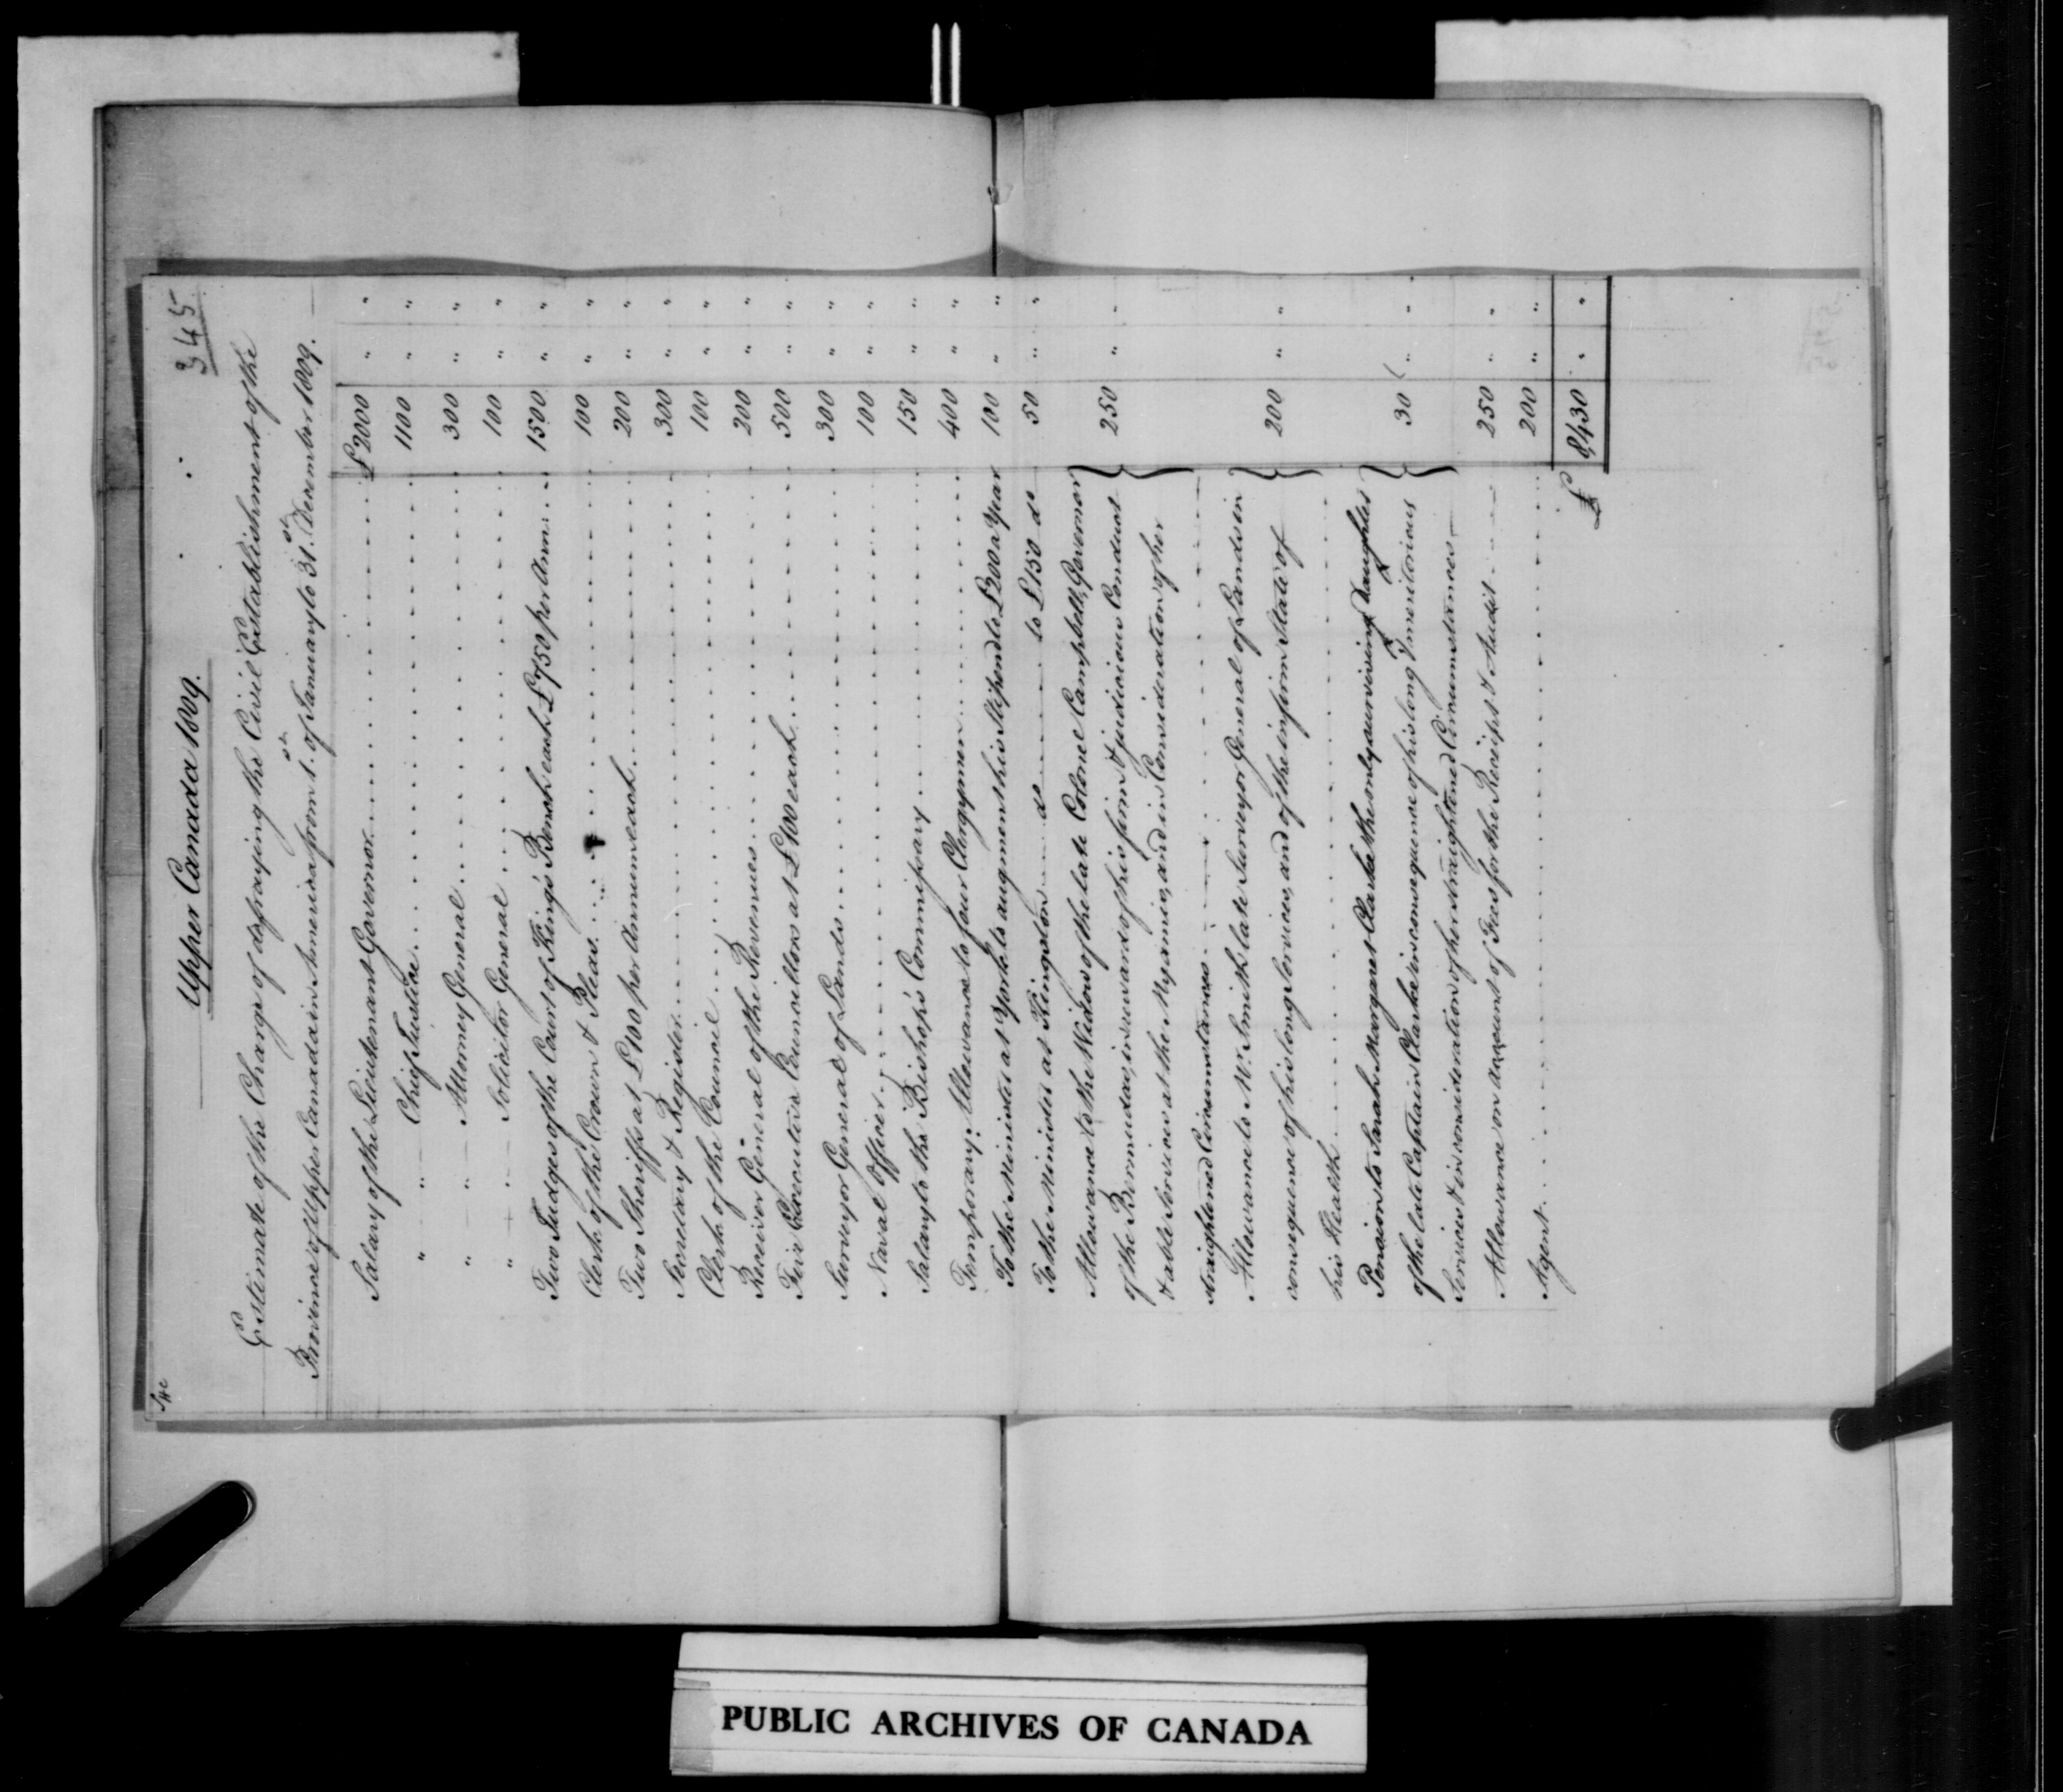 345
Upper Canada 1809.
Estimate of the Charge of defraying the Civil Establishment of the
Province of Upper Canada in America from 1.st of January to 31.st December 1809.
Salary of the Lieutenant Governor £2000 " "
" " Chief Justice 1100 " "
" " Attorney General 300 " "
" " Solicitor General 100 " "
Two Judges of the Court of King's Bench each £750 per Ann: 1500 " "
Clerk of the Crown & Pleas 100 " "
Two Sheriffs at £100 per Annum each 200 " "
Secretary & Register 300 " "
Clerk of the Council 100 " "
Receiver General of the Revenues 200 " "
Five Executive Councillors at £100 each 500 " "
Surveyor General of Lands 300 " "
Naval Officer 100 " "
Salary to the Bishop's Commissary 150 " "
Temporary Allowance to four Clergymen 400 " "
To the Minister at York to augment his Stipend to £200 a Year 100 " "
To the Minister at Kingston do to £150 do 50 " "
Allowance to the Widow of the late Colonel Campbell, Governor
of the Bermudas, in reward of his firm & judicious Conduct 250 " "
& able Services at the Myamis, and in Consideration of her
straightened Circumstances
Allowance to Mr. Smith late Surveyor General of Lands in
consequence of his long Services, and of the infirm State of 200 " "
his Health
Pension to Sarah Margaret Clarke the only surviving Daughter
of the late Captain Clarke in consequence of his long & meritorious 30 " "
Services & in consideration of her straightened Circumstances
Allowance on account of Fees for the Receipt & Audit 250 " "
Agent 200 " "
£ 8,430 " "
PUBLIC ARCHIVES OF CANADA